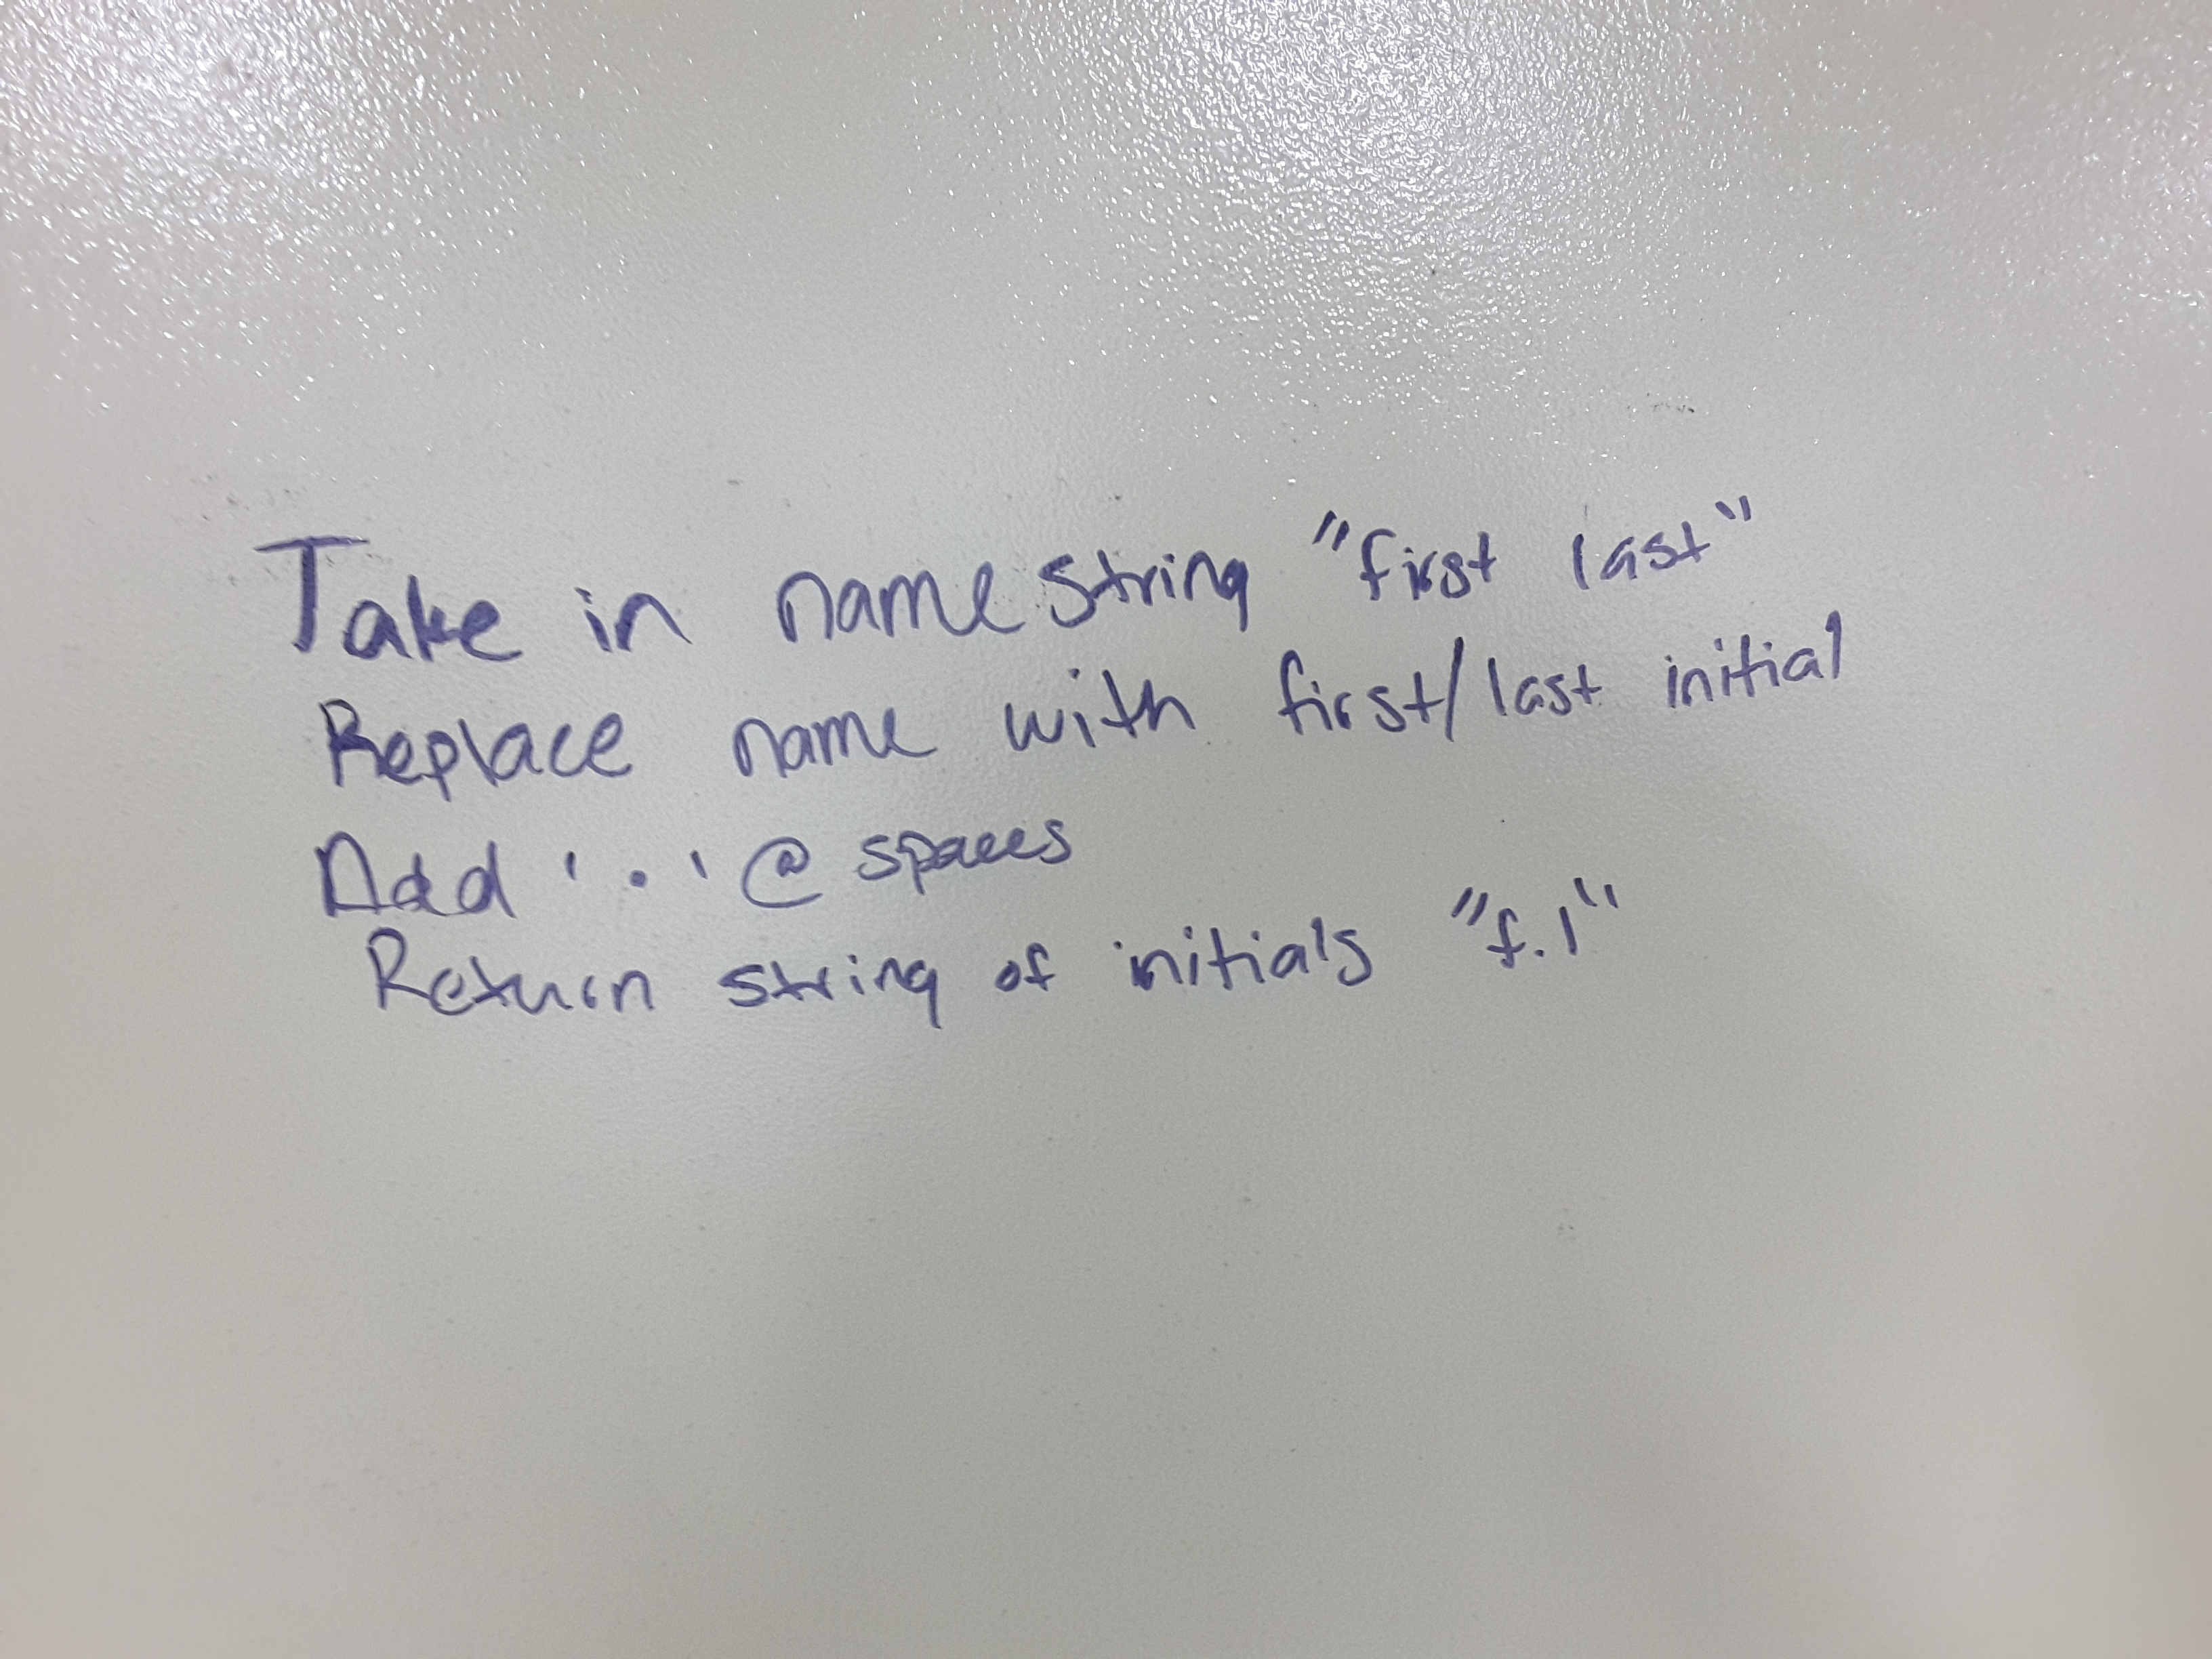 Take in name string "first last"
Replace name with first/last initial
Add '.' @ spaces
Return string of initials "f.l"